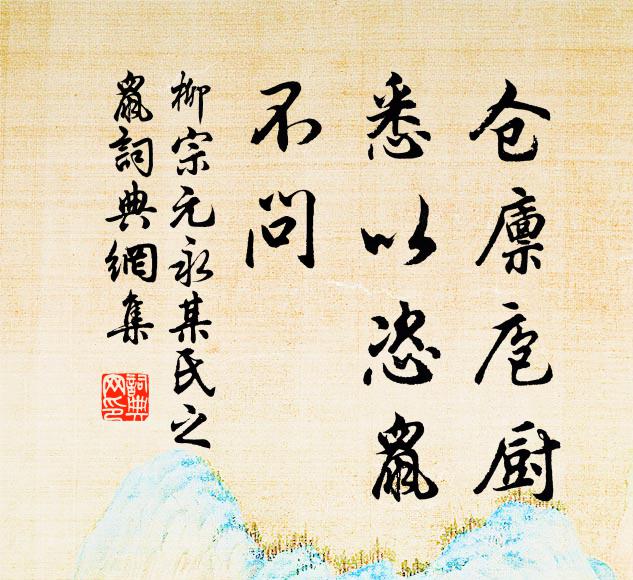 仓廪庖厨
悉以恣鼠
不问
柳宗元永某氏之
鼠詞典網集
詞典
网印